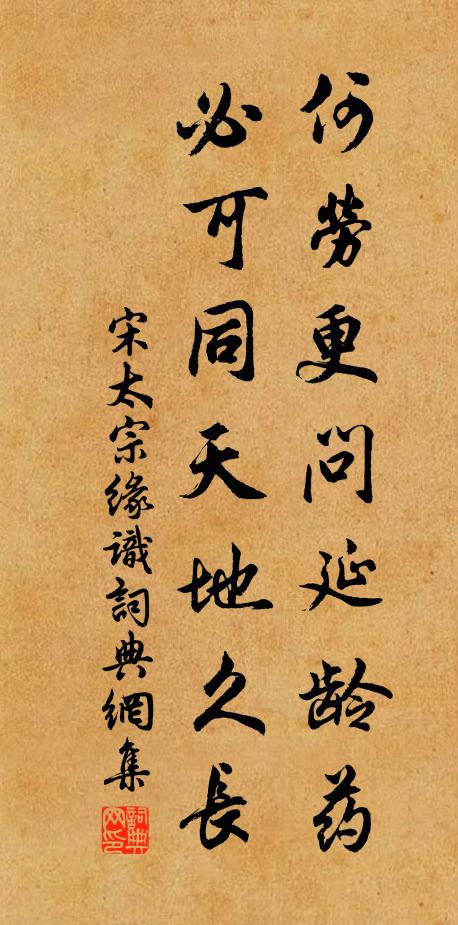 何劳更问延龄药
必可同天地久長
宋太宗缘識詞典網集
詞典网印